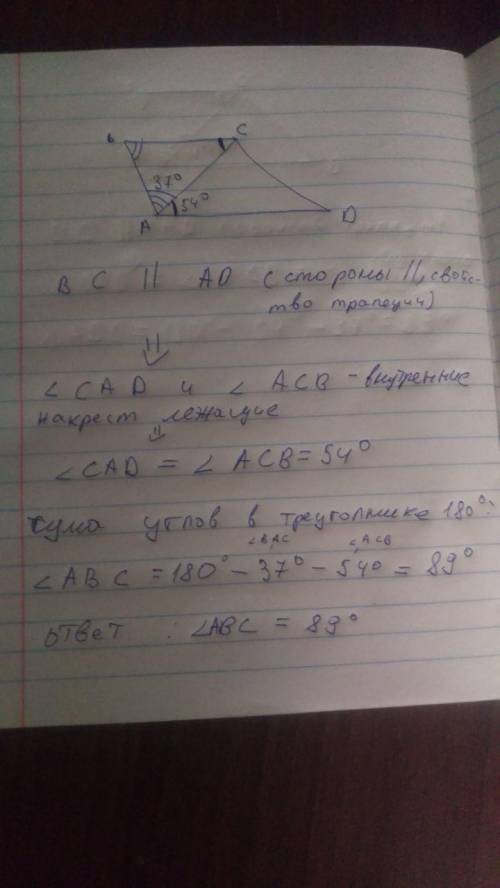 B C
37°
54°
A D
B C || AD (стороны ||, свойс-
тво трапеции)
⇓
∠CAD и ∠ACB - внутренние
накрест лежащие
⇓
∠CAD = ∠ACB = 54°
сума углов в треуголнике 180°:
∠BAC ∠ACB
∠ABC = 180° - 37° - 54° = 89°
ответ : ∠ABC = 89°